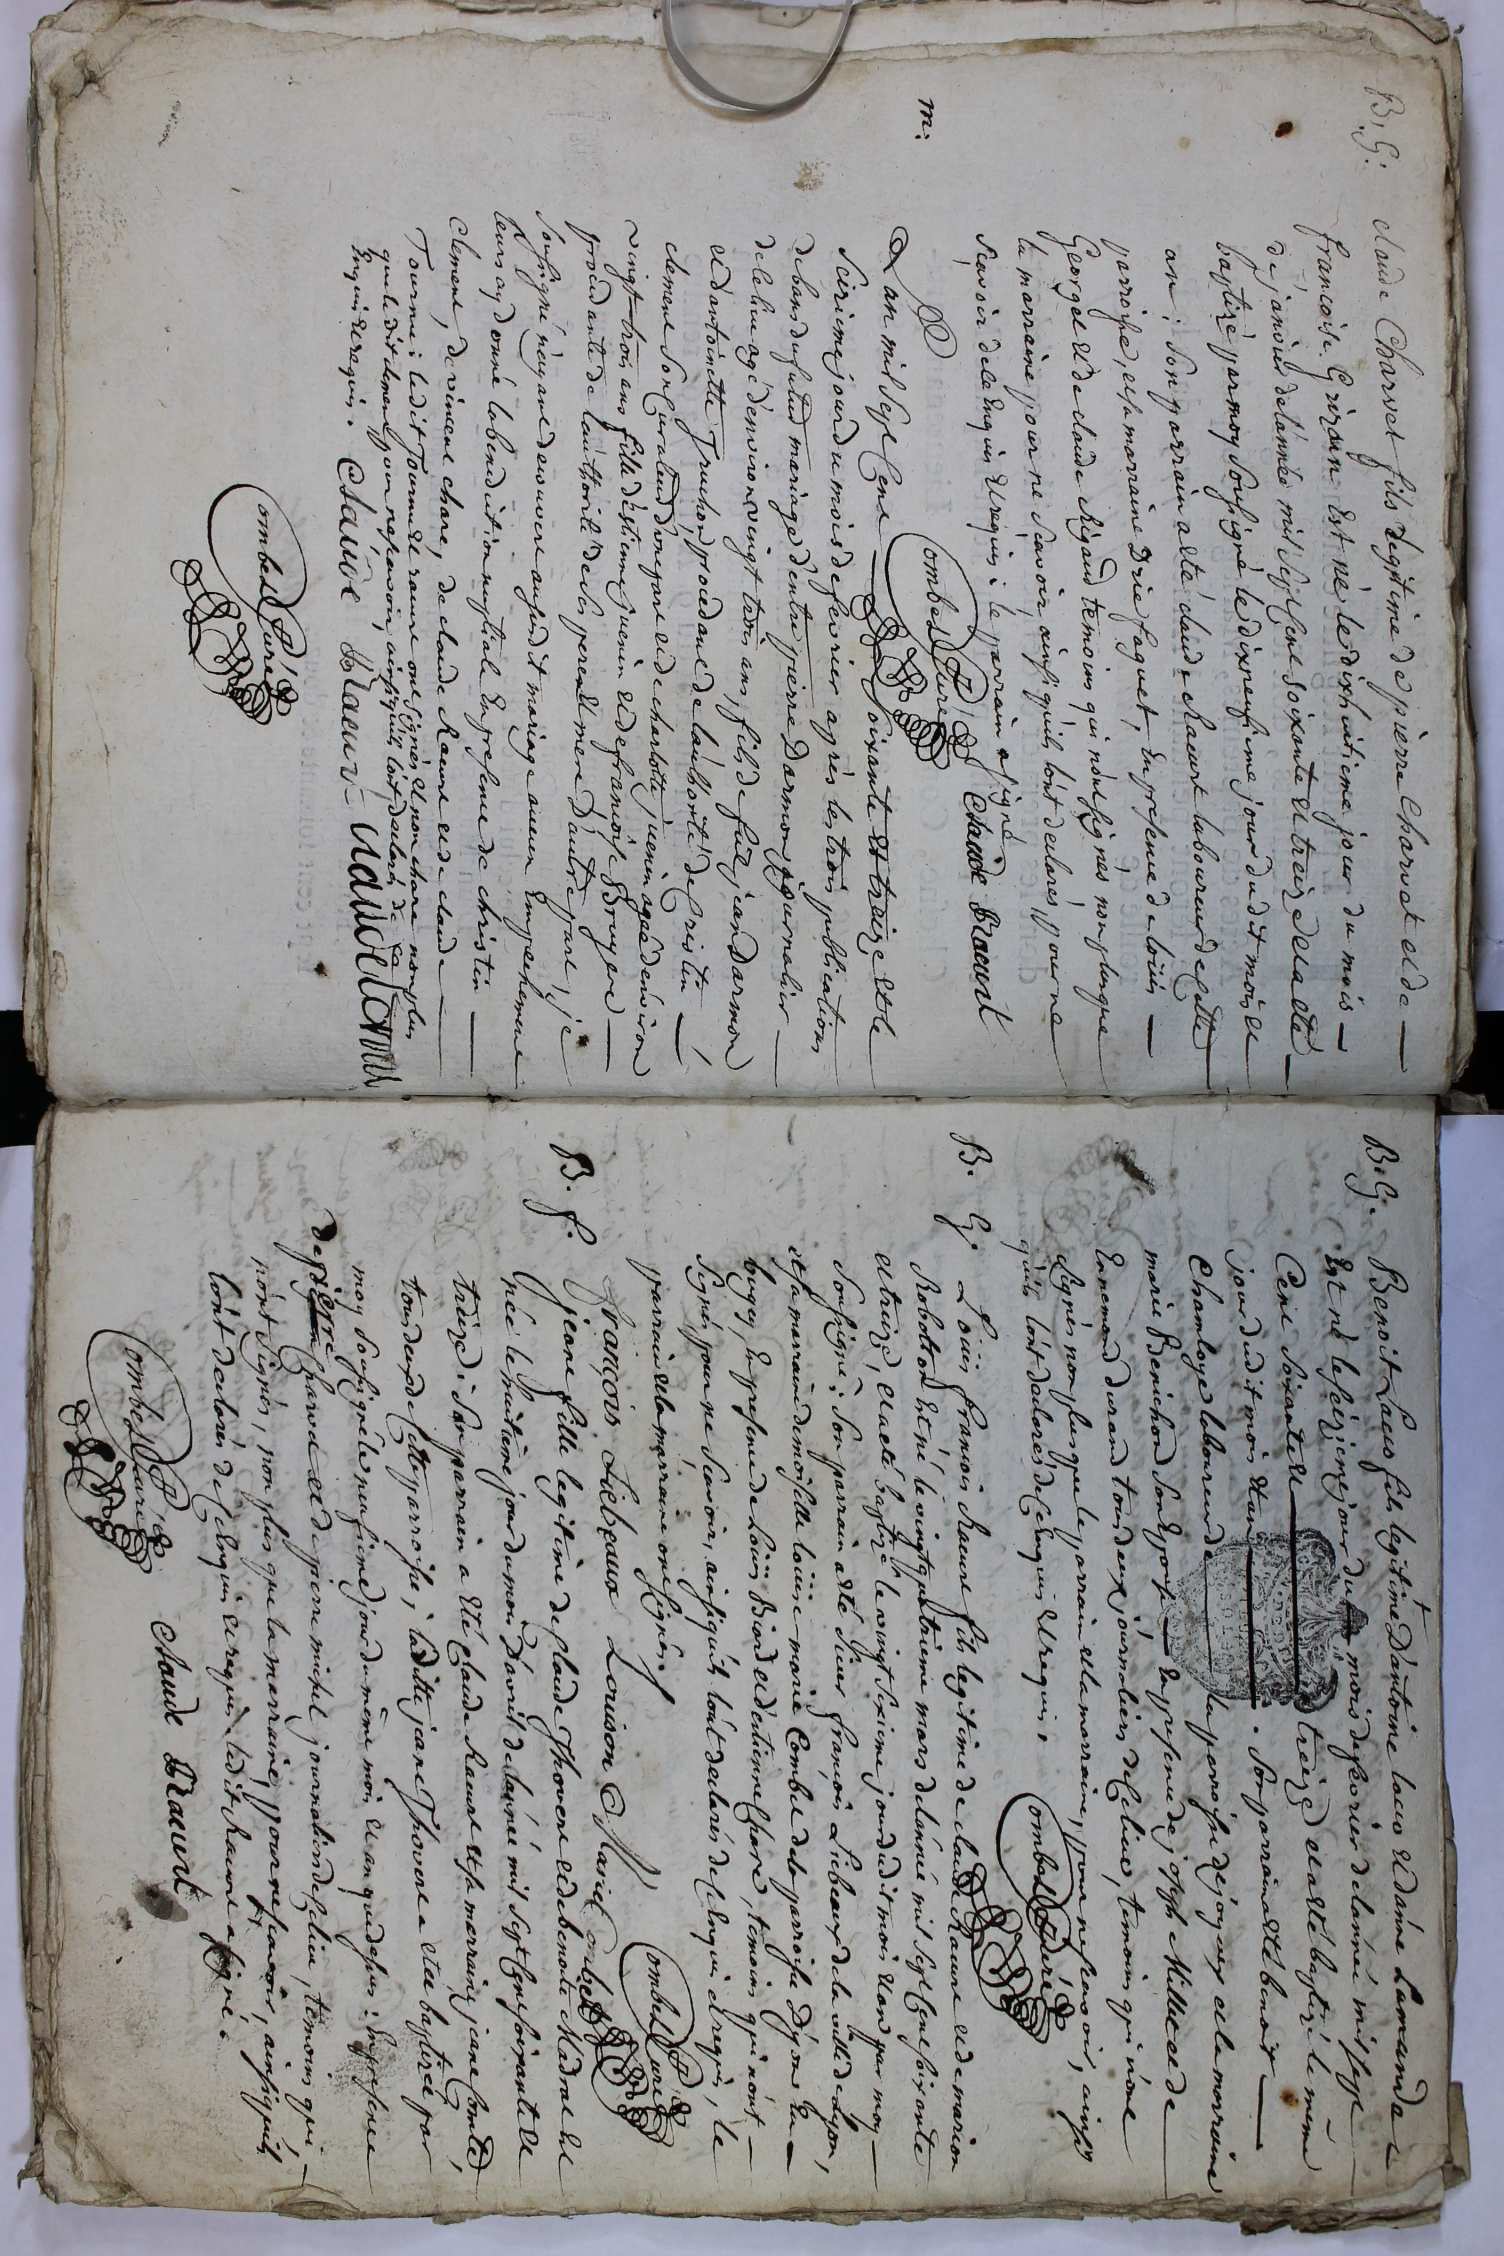 B. G. Claude Charvet fils legitime de pierre Charvet et de
francoise Girardin Est né le dixhuitieme jour du mois
de janvier de lannée mil sept Cent soixante et treize et a eté
baptizé par moy soussigné le dixneufieme jour dudit mois et
an ; son parrain a eté claude Raeurt laboureur de Cette
parroisse, et sa marraine Faquet, En presence de loüis
George et de claude Rigaud temoins qui n'ont signés non plusque
la marraine pour ne scavoir, ainsi quils l'ont declarés, pour ne
scavoir de ce Enquis et requis ; le parrain a signé
Claude Raeurt
Combes Curé
m. L'an mil Sept Cent Soixante et treize et le
seizieme jour du mois de fevrier apres les trois publications
de bans du futur mariage d'entre pierre Darmon journalier
de ce lieu agé denviron vingt trois ans, fils de feu jean Darmon
et d'antoinette Truchon, procedant de lauthorité de Cristin
clement son Curateur d'une part et de charlotte juenin agée denviron
vingt trois ans fille d'estienne juenin et de francoise Bruyere
procedante de lauthorité de ses pere et mere D'autre part, je
soussigné n'ayant decouvert audit mariage aucun Empeschement
leurs ay donné la benediction nuptiale En presence de christin
Clement, de vincent chare, de claude Raeurt et de claude
Tournu : ledit Tournu et raeurt ont signés et non chare non plus
que ledit clement pour ne scavoir, ainsi quils l'ont declaré de ce
Enquis et requis. Claude Raeurt Claude Tournu
Combes Curé
B. G. Benoit Laeus fils legitime D'antoine laeus et d'anne Lamanda
Est né le seizieme jour du mois de fevrier de lannée mil sept
Cent soixante et treize et a eté baptizé le meme
jour dudit mois et an . Son parrain a eté benoit
Chamboye laboureur de la parroisse de joyeux et la marraine
marie Benichon son Epouse En presence de joseph Millet et de
Ennemond durand tous deux journaliers de Ce lieu, temoins qui n'ont
signés non plus que le parrain et la marraine, pour ne scavoir, ainsi
quils l'ont declarés de Ce Enquis et requis.
Combes Curé
B. G. Loüis francois Raeurt fils legitime de claude Raeurt et de marion
Robolton Est né le vingt quatrieme mars de lannée mil sept Cent soixante
et treize, et a eté baptizé le vingt sixieme jour dudit mois et an par moy
soussigné ; Son parrain a eté sieur francois Liebeaux de la ville de Lyon,
et sa marraine demoiselle loüise marie Combet de la parroisse D'yon En
bugey, En presence de Loüis Biord et d'estienne Chare, temoins qui n'ont
signés pour ne scavoir, ainsi quils l'ont declarés de Ce Enquis et requis, le
parrain et la marraine ont signés.
francois Liebeaux Louison Marie Combet
Combes Curé
B. f. jeane fille legitime de Claude Thovent et de benoite Madrat Est
née le huitième jour du mois D'avril de lannée mil sept Cent soixante et
treize. Son parrain a eté Claude Raeurt et sa marraine jeane Comte
tous deux de Cette parroisse, laditte jeane Thovent a eté baptizée par
moy soussigné le neufieme jour du même mois et an que dessus : En presence
de pierre Charvet et de pierre michel journaliers de Ce lieu, temoins qui
n'ont signés, non plus que la marraine, pour ne scavoir, ainsi quils
l'ont declarés de Ce Enquis et requis ; ledit Raeurt a signé.
Claude Raeurt
Combes Curé